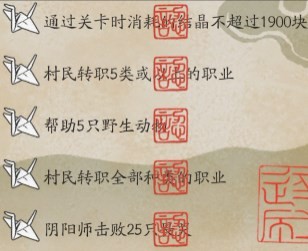 通过关卡时消耗的结晶不超过1900块
村民转职5类或以上的职业
帮助5只野生动物
村民转职全部种类的职业
阴阳师击败25只